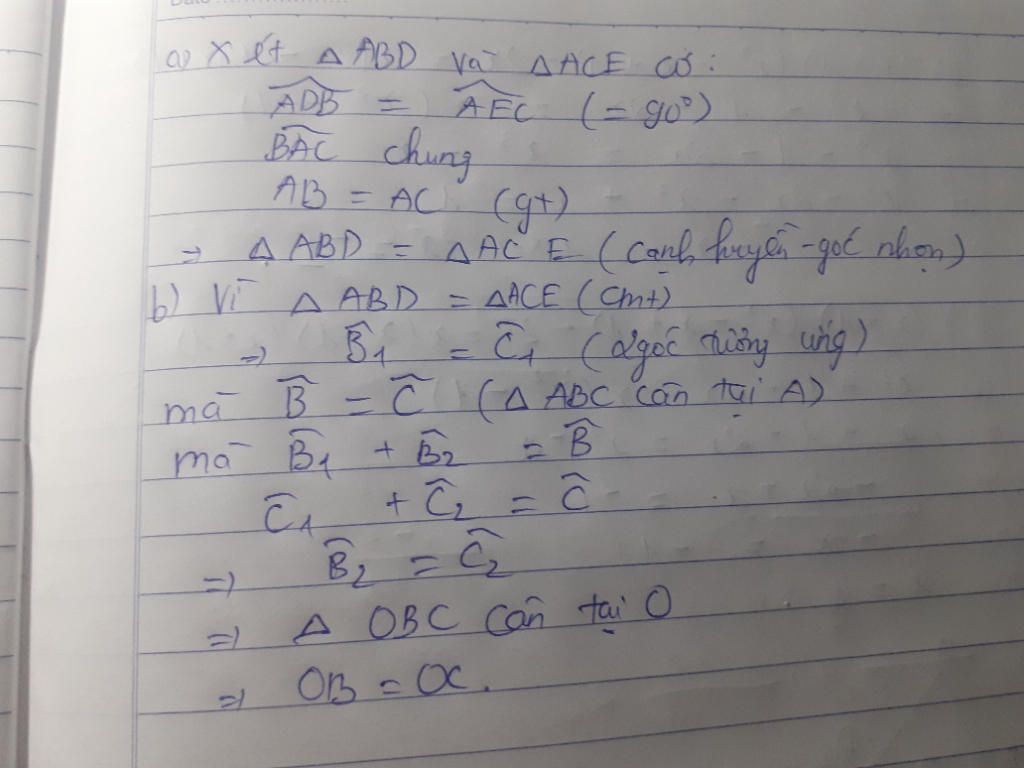 Date
a) Xét △ABD và △ACE có:
\widehat{ADB} = \widehat{AEC} (= 90°)
\widehat{BAC} chung
AB = AC (gt)
⇒ △ABD = △ACE (cạnh huyền-góc nhọn)
b) Vì △ABD = △ACE (cmt)
⇒ \widehat{B}₁ = \widehat{C}₁ (2 góc tương ứng)
mà \widehat{B} = \widehat{C} (△ABC cân tại A)
mà \widehat{B}₁ + \widehat{B}₂ = \widehat{B}
\widehat{C}₁ + \widehat{C}₂ = \widehat{C}
⇒ \widehat{B}₂ = \widehat{C}₂
⇒ △OBC cân tại O
⇒ OB = OC.